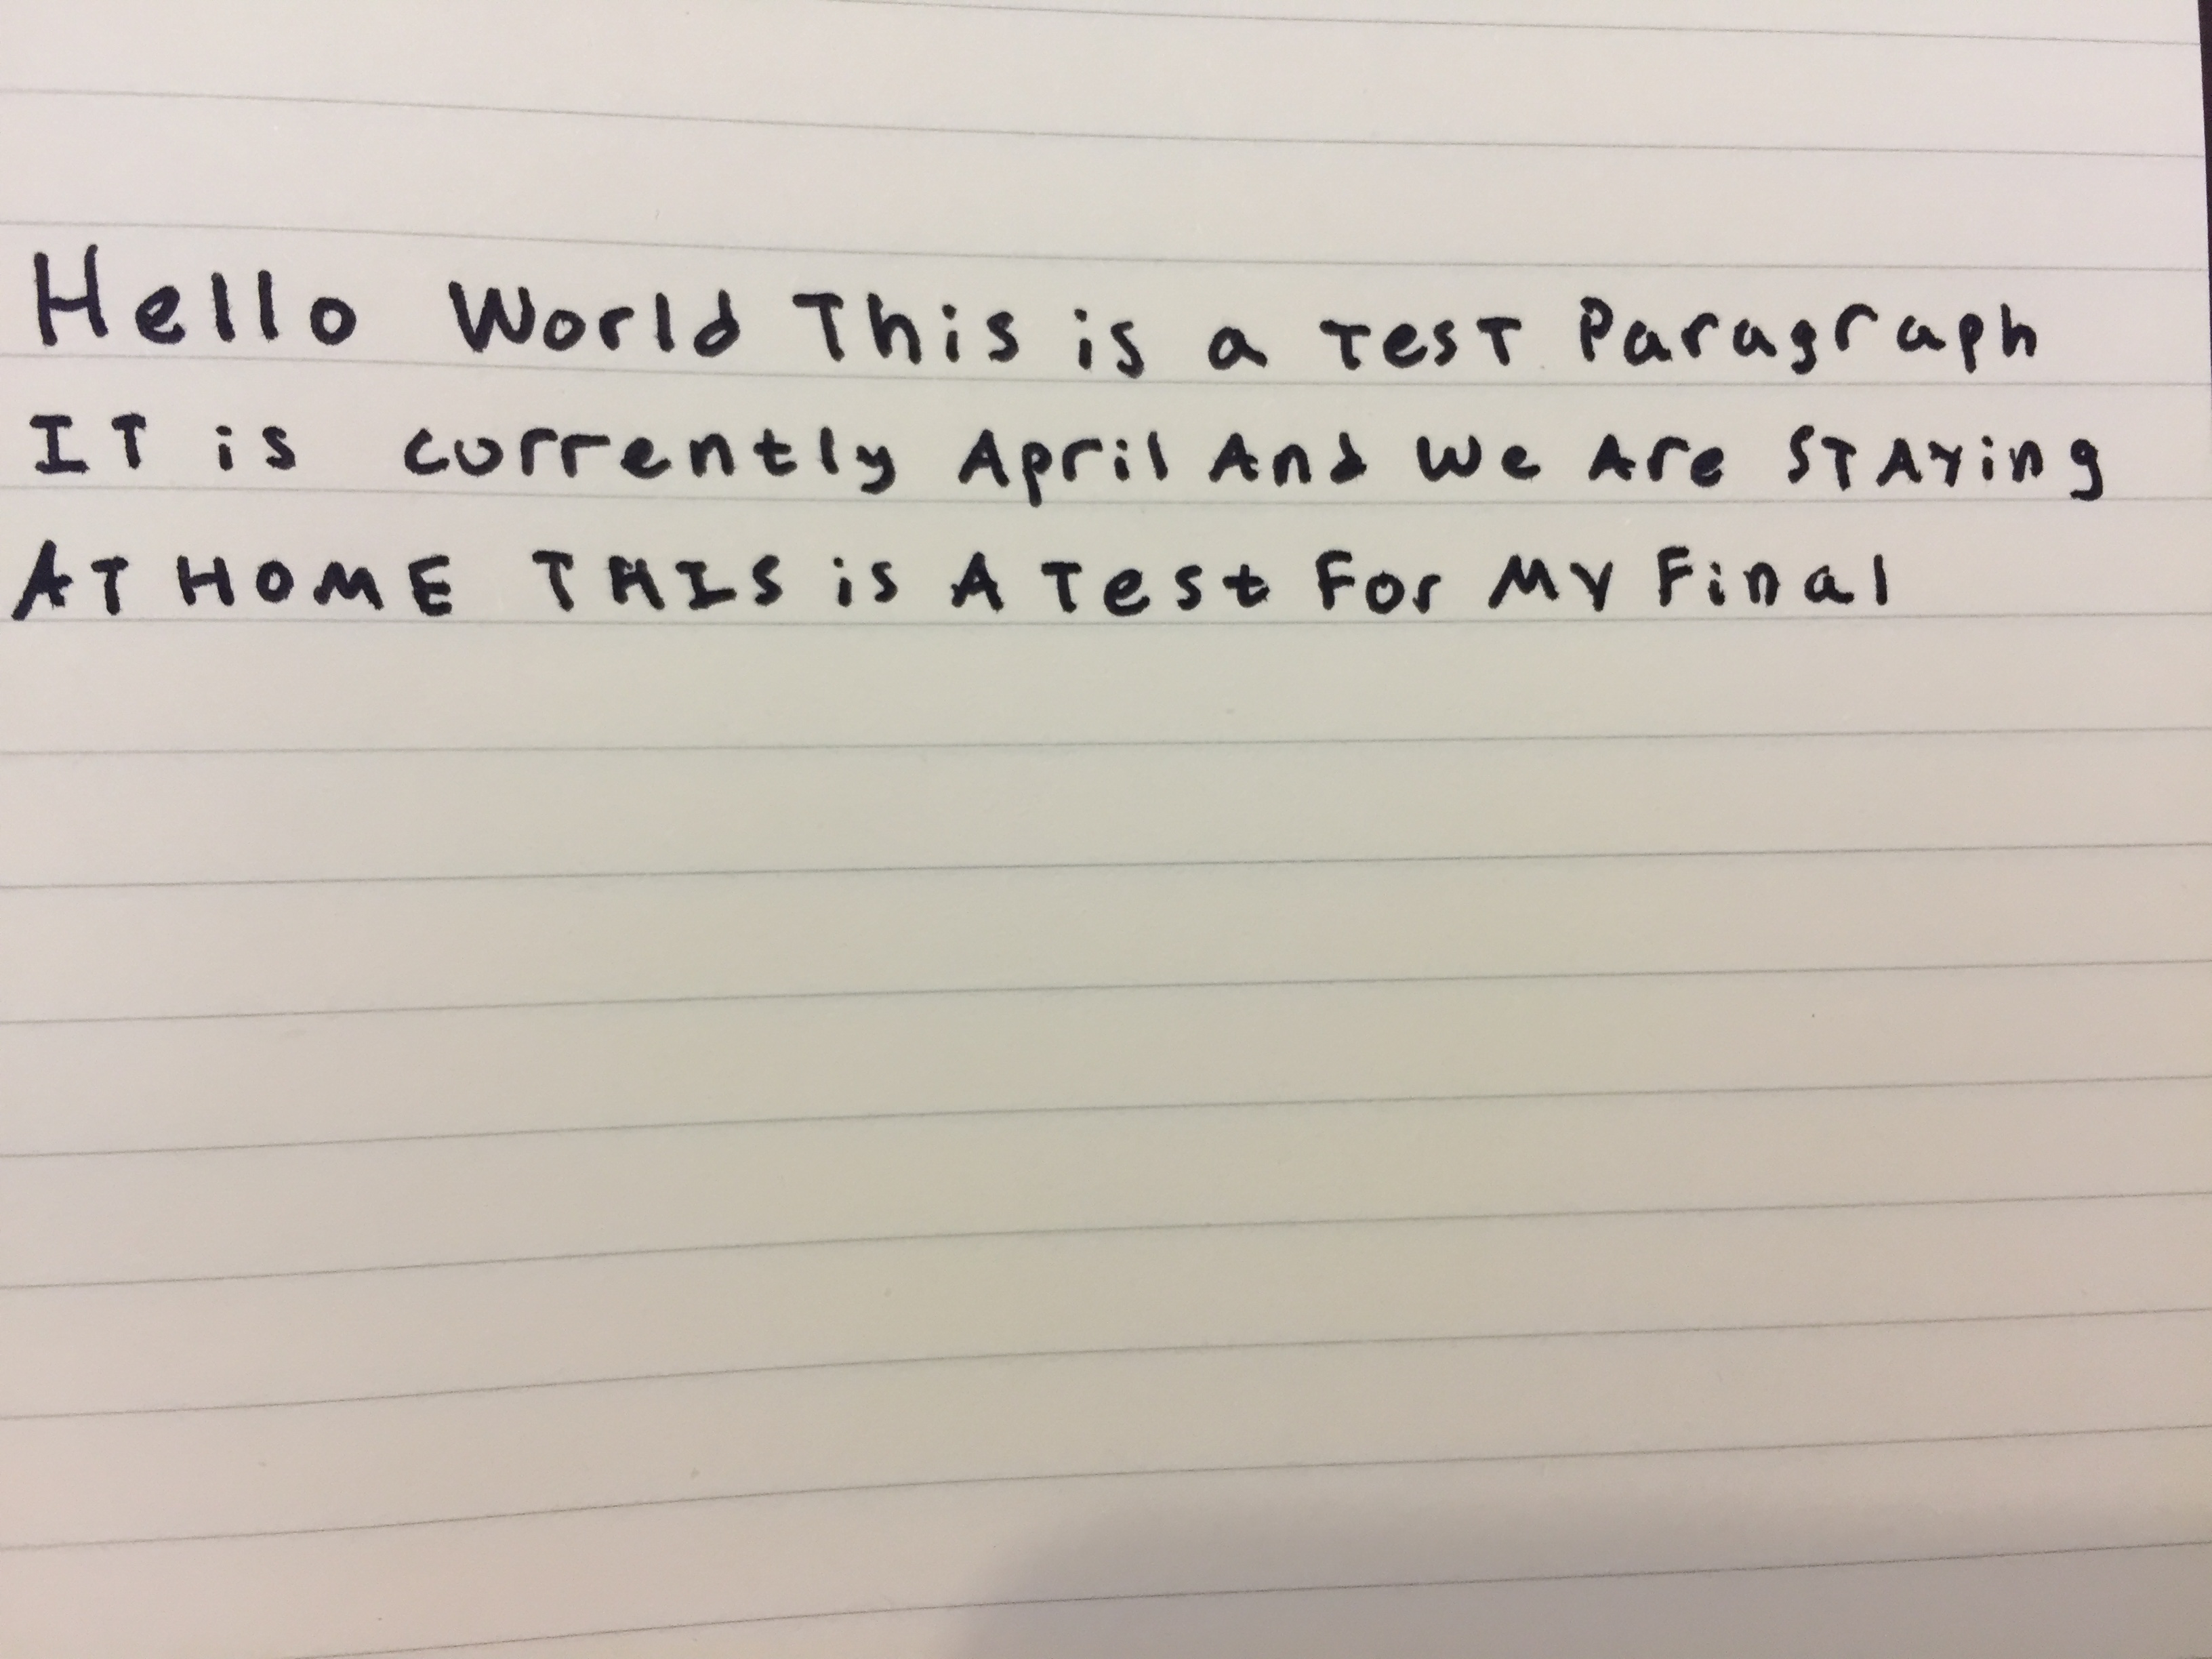 Hello World This is a Test Paragraph
IT is currently April And We Are STAYing
AT HOME THIS is A Test For My Final